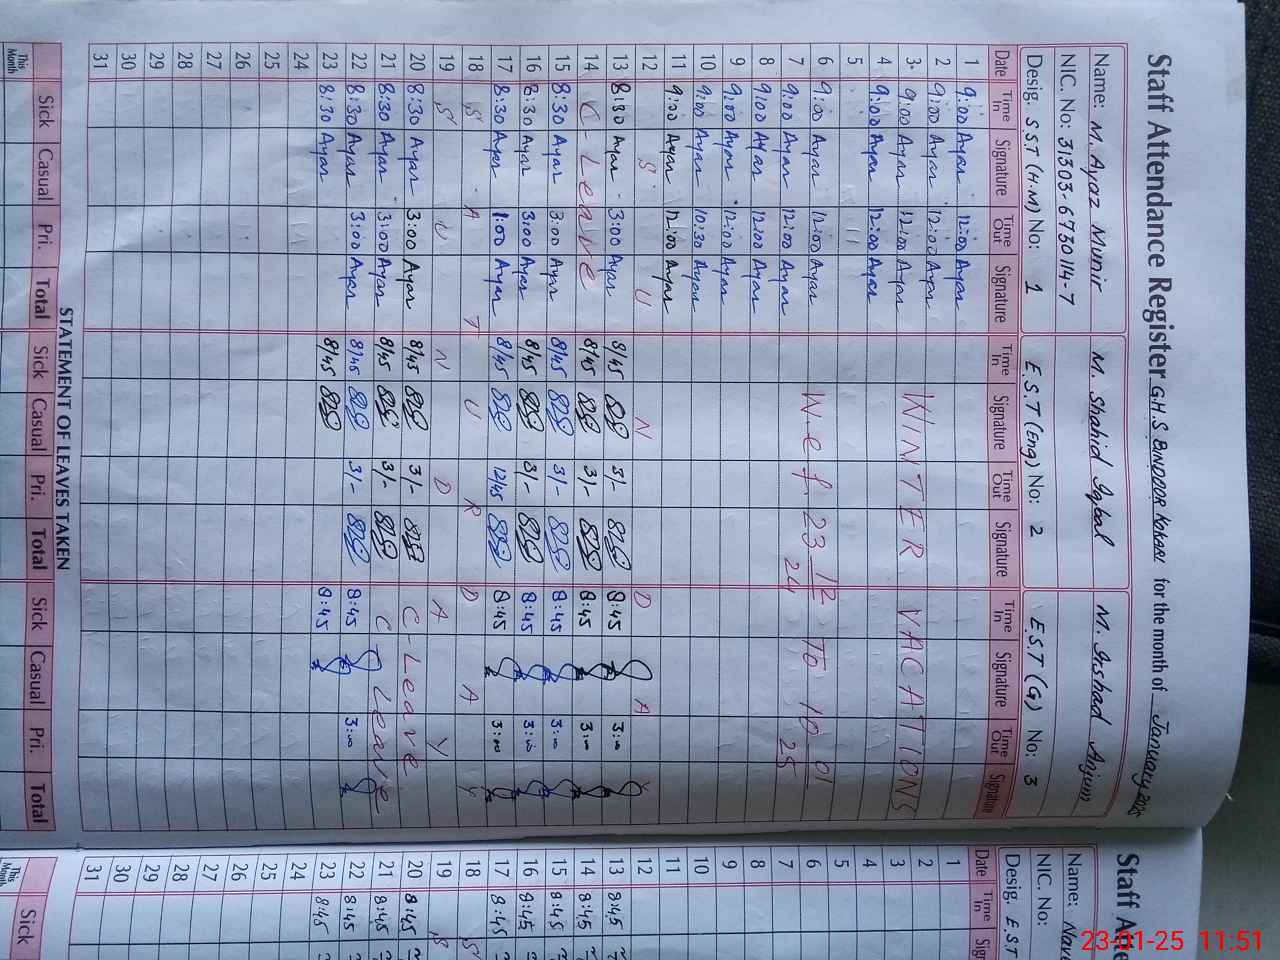 Staff Attendance Register G.H.S BINDOOR KOKARI for the month of January 2025
Name: M. Ayaz Munir M. Shahid Iqbal M. Irshad Anjum
NIC. No: 31303-6730114-7
Desig. S.S.T (H.M) No: 1 E.S.T (Eng) No: 2 E.S.T (G) No: 3
Date Time In Signature Time Out Signature Time In Signature Time Out Signature Time In Signature Time Out Signature
1 9:00 Ayaz 12:00 Ayaz
2 9:00 Ayaz 12:00 Ayaz
3 9:00 Ayaz 12:00 Ayaz WINTER VACATIONS
4 9:00 Ayaz 12:00 Ayaz
5
6 9:00 Ayaz 12:00 Ayaz W.e.f. 23 12/24 To 10 01/25
7 9:00 Ayaz 12:00 Ayaz
8 9:00 Ayaz 12:00 Ayaz
9 9:00 Ayaz 12:00 Ayaz
10 9:00 Ayaz 10:30 Ayaz
11 9:00 Ayaz 12:00 Ayaz
12 S U N D A Y
13 8:30 Ayaz 3:00 Ayaz 8/45 3/- 8:45 3:00
14 C-Leave 8/45 3/- 8:45 3:00
15 8:30 Ayaz 3:00 Ayaz 8/45 3/- 8:45 3:00
16 8:30 Ayaz 3:00 Ayaz 8/45 3/- 8:45 3:00
17 8:30 Ayaz 1:00 Ayaz 8/45 12/45 8:45 3:00
18 S A T U R D A Y
19 S U N D A Y
20 8:30 Ayaz 3:00 Ayaz 8/45 3/- C-Leave
21 8:30 Ayaz 3:00 Ayaz 8/45 3/- C Leave
22 8:30 Ayaz 3:00 Ayaz 8/45 3/- 8:45 3:00
23 8:30 Ayaz 8/45 8:45
24
25
26
27
28
29
30
31
STATEMENT OF LEAVES TAKEN
Sick Casual Pri. Total Sick Casual Pri. Total Sick Casual Pri. Total
This Month
Staff Atte
Name:
NIC. No:
Desig. E.S.T
Date Time In
1
2
3
4
5
6
7
8
9
10
11
12
13 8:45
14 8:45
15 8:45
16 8:45
17 8:45
18 S
19 S
20 8:45
21 8:45
22 8:45
23 8:45
24
25
26
27
28
29
30
31
Sick
This Month
23-01-25 11:51